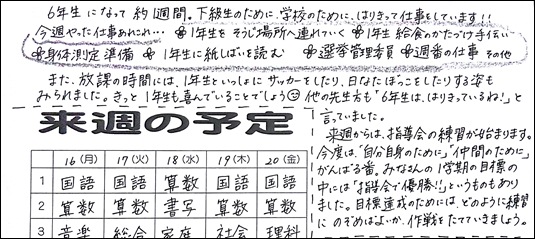 6年生になって約1週間。下級生のために、学校のために、はりきって仕事をしています!!
今週やった仕事あれこれ… ❀1年生をそうじ場所へ連れていく ❀1年生給食のかたづけ手伝い
❀身体測定準備 ❀1年生に紙しばいを読む ❀選挙管理委員 ❀週番の仕事 その他
また、放課の時間には、1年生といっしょにサッカーをしたり、日なたぼっこをしたりする姿も
みられました。きっと1年生も喜んでいることでしょう☺ 他の先生方も「6年生は、はりきっているね!」と
言っていました。
来週からは、指導会の練習が始まります。
今度は、「自分自身のために」「仲間のために」
がんばる番。みなさんの1学期の目標の
中には「指導会で優勝!!」というものもあり
ました。目標達成のためには、どのように練習
にのぞめばよいか、作戦をたてていきましょう。
来週の予定
16(月) 17(火) 18(水) 19(木) 20(金)
1 国語 国語 算数 国語 国語
2 算数 算数 書写 算数 算数
3 音楽 総合 家庭 社会 理科